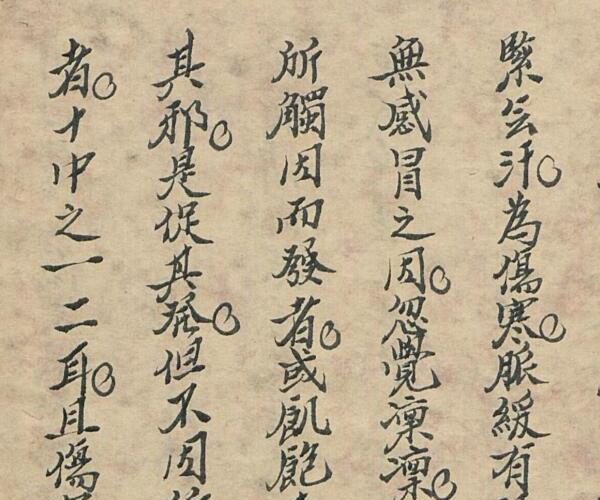 緊无汗。為傷寒。脈緩有
無感冒之因。忽覺凜凜。
所觸因而發者。或飢飽
其邪。是促其発。但不因
者。十中之一二耳。且傷